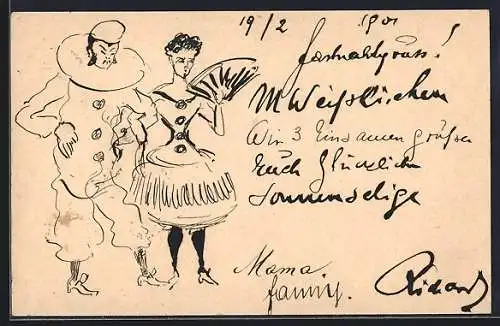 19/2 1901
Fastnachtgruss!
Wir 3 Einsamen grüßen
Euch Glücklichen
Sonnenselige
Mama
Fanny.
Richard